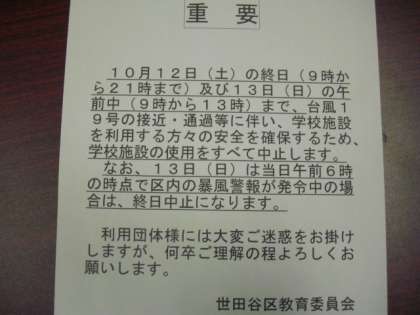 重 要
１０月１２日（土）の終日（９時か
ら２１時まで）及び１３日（日）の午
前中（９時から１３時）まで、台風１
９号の接近・通過等に伴い、学校施設
を利用する方々の安全を確保するため、
学校施設の使用をすべて中止します。
なお、１３日（日）は当日午前６時
の時点で区内の暴風警報が発令中の場
合は、終日中止になります。
利用団体様には大変ご迷惑をお掛け
しますが、何卒ご理解の程よろしくお
願いします。
世田谷区教育委員会